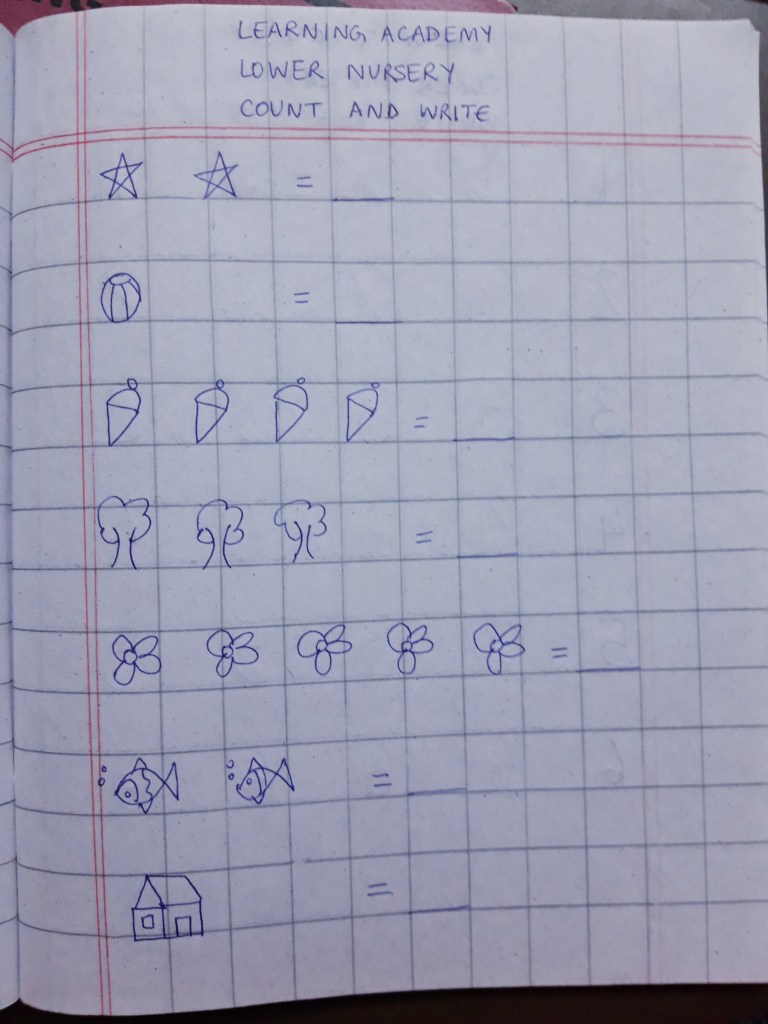 LEARNING ACADEMY
LOWER NURSERY
COUNT AND WRITE
= __
= __
= __
= __
= __
= __
= __